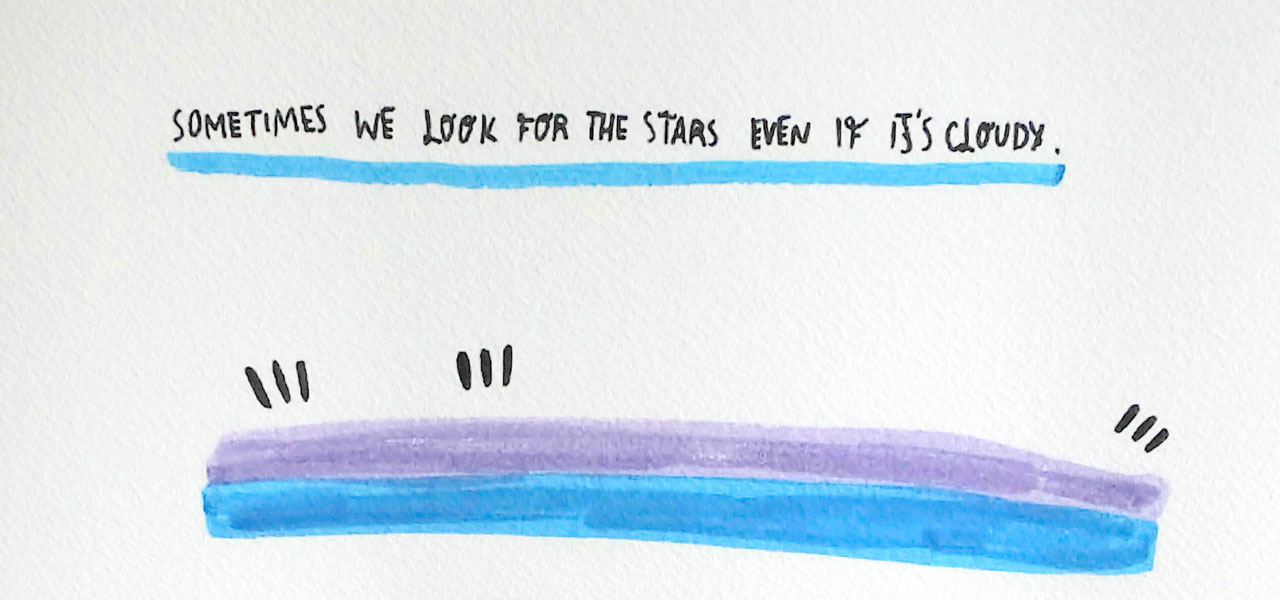 SOMETIMES WE LOOK FOR THE STARS EVEN IF IT'S CLOUDY.